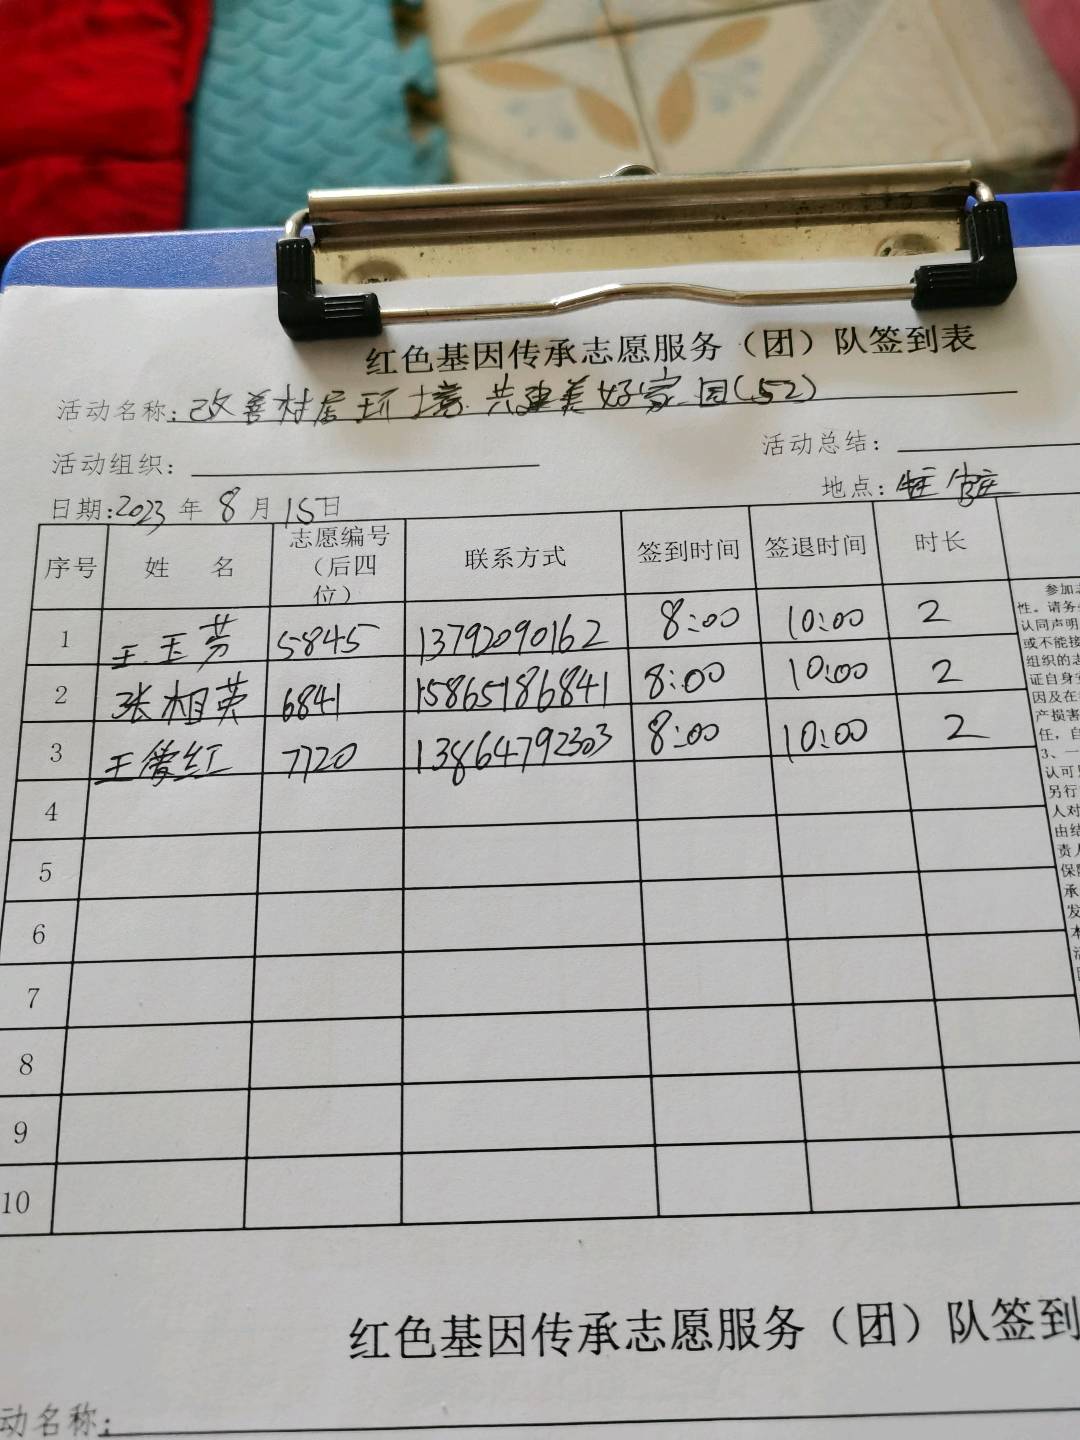 红色基因传承志愿服务（团）队签到表
活动名称:改善村居环境 共建美好家园(52)
活动组织: 活动总结:
日期:2023年8月15日 地点:
序号 姓 名 志愿编号（后四位） 联系方式 签到时间 签退时间 时长
1 王玉芳 5845 13792090162 8:00 10:00 2
2 张相英 6841 15865186841 8:00 10:00 2
3 王爱红 7720 13864792303 8:00 10:00 2
4
5
6
7
8
9
10
参加志
性。请务
认同声明
或不能接
组织的志
证自身安
因及在
产损害
任，自
3、一
认可
另行
人对
由结
责人
保障
承
发
本
红色基因传承志愿服务（团）队签到
动名称: